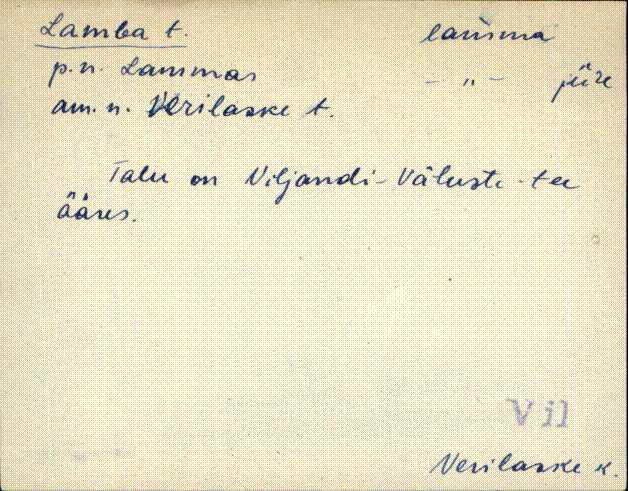 Lamba t. lam̀ma
p.n. Lammas – „ – jüre
am. n. Verilaske t.
Talu on Viljandi-Väluste-tee
ääres.
Vil
Verilaske k.